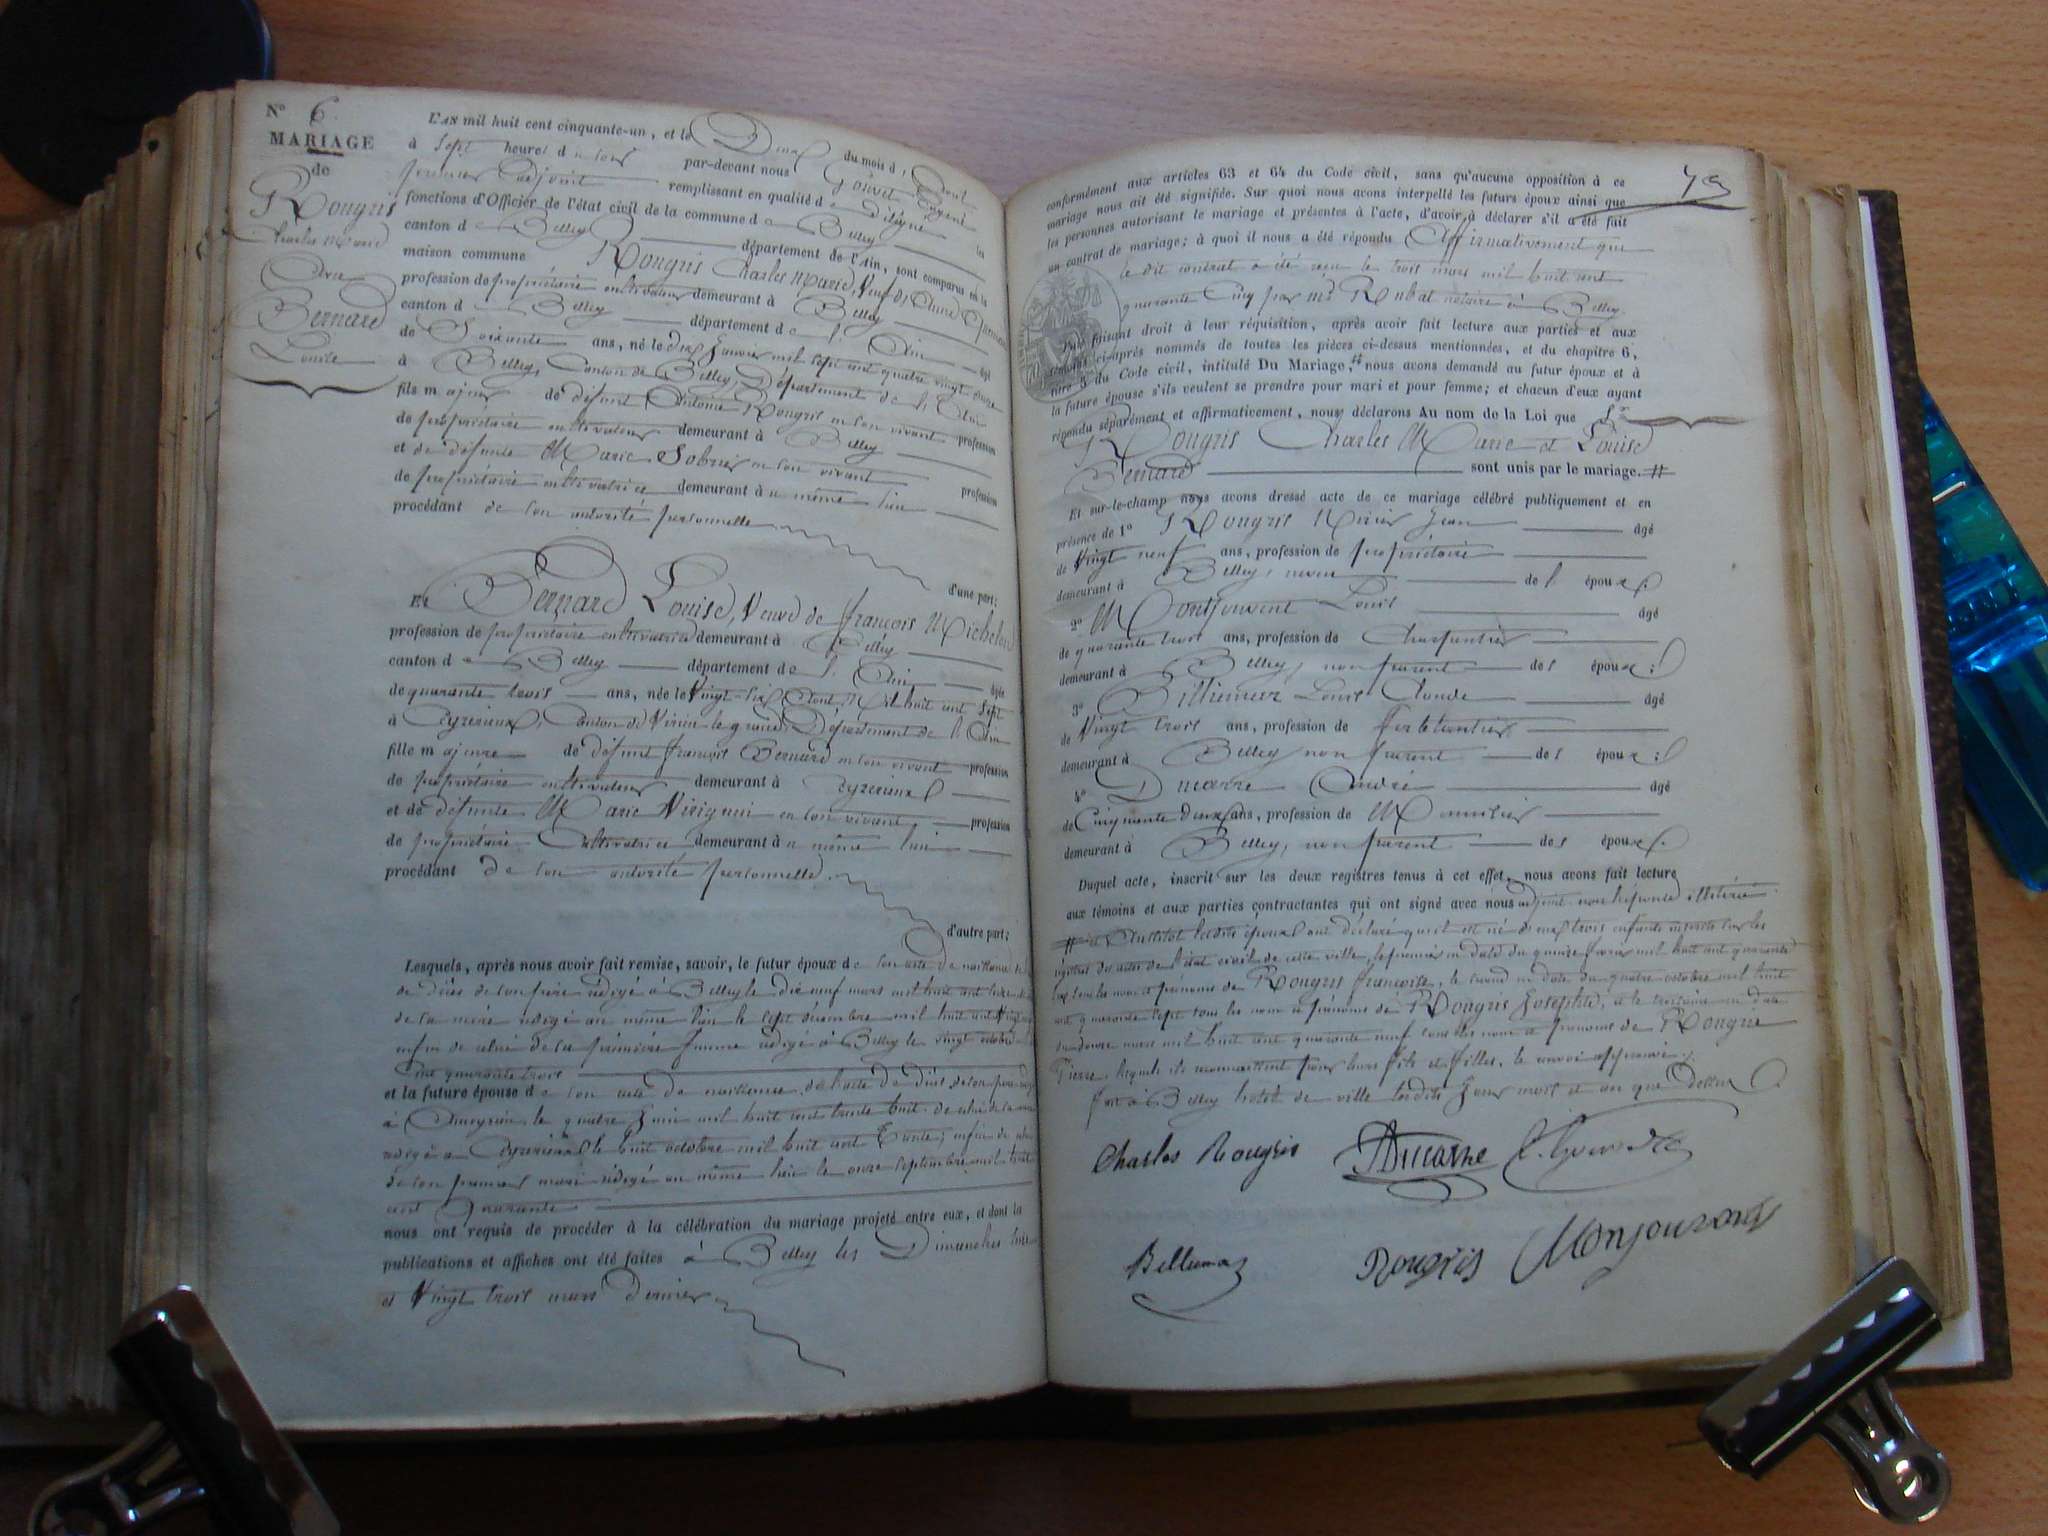 N° 6.
MARIAGE
de
Rougris
Charles Marie
Avec
Bernard
Louise
L'AN mil huit cent cinquante-un, et le Deux du mois d'Avril
à sept heures du soir par-devant nous
premier adjoint remplissant en qualité de
fonctions d'Officier de l'état civil de la commune de Belley les
canton de Belley département de l'Ain, sont comparus en la
maison commune Rougris Charles Marie, Veuf de
profession de propriétaire cultivateur demeurant à Belley
canton de Belley département de l'Ain âgé
de Soixante ans, né le dix Janvier mil sept cent quatre vingt onze
à Belley, Canton de Belley, Département de l'Ain
fils majeur de défunt Antoine Rougris en son vivant profession
de propriétaire cultivateur demeurant à Belley
et de défunte Marie en son vivant profession
de propriétaire cultivatrice demeurant au même lieu
procédant de son autorité personnelle
d'une part;
Et Bernard Louise, Veuve de françois Michelon
profession de propriétaire cultivatrice demeurant à Belley
canton de Belley département de l'Ain âgée
de quarante trois ans, née le Vingt-six Août Mil huit cent sept
à Ceyzerieux, Canton de Virieu le grand, Département de l'Ain
fille majeure de défunt françois Bernard en son vivant profession
de propriétaire cultivateur demeurant à Ceyzerieux
et de défunte Marie en son vivant profession
de propriétaire Cultivatrice demeurant au même lieu
procédant de son autorité personnelle.
d'autre part;
Lesquels, après nous avoir fait remise, savoir, le futur époux de son acte de naissance
de décès de son père rédigé à Belley le dix neuf mars mil huit cent
de sa mère rédigé au même lieu le sept décembre mil huit cent
enfin de celui de sa première femme rédigé à Belley le vingt octobre
cent quarante trois
et la future épouse de son acte de naissance, de l'acte de décès de son père
à le quatre Juin mil huit cent trente huit, de celui de sa mère
rédigé à Ceyzerieux le huit octobre mil huit cent Trente; enfin de celui
de son premier mari rédigé au même lieu le onze Septembre mil huit
cent Quarante
nous ont requis de procéder à la célébration du mariage projeté entre eux, et dont la
publications et affiches ont été faites à Belley les Dimanches
et Vingt trois mars Dernier
73
conformément aux articles 63 et 64 du Code civil, sans qu'aucune opposition à ce
mariage nous ait été signifiée. Sur quoi nous avons interpellé les futurs époux ainsi que
les personnes autorisant le mariage et présentes à l'acte, d'avoir à déclarer s'il a été fait
un contrat de mariage; à quoi il nous a été répondu Affirmativement que
le dit contrat a été reçu le trois mars mil huit cent
quarante Cinq par me Rubat notaire à Belley.
Puis faisant droit à leur réquisition, après avoir fait lecture aux parties et aux
témoins ci-après nommés de toutes les pièces ci-dessus mentionnées, et du chapitre 6,
titre 5 du Code civil, intitulé Du Mariage, nous avons demandé au futur époux et à
la future épouse s'ils veulent se prendre pour mari et pour femme; et chacun d'eux ayant
répondu séparément et affirmativement, nous déclarons Au nom de la Loi que
Rougris Charles Marie et Louise
Bernard sont unis par le mariage. #
Et sur-le-champ nous avons dressé acte de ce mariage célébré publiquement et en
présence de 1° Rougris Jean âgé
de Vingt neuf ans, profession de propriétaire
demeurant à Belley, neveu de l'époux.
2° Montjouvent Louis âgé
de quarante trois ans, profession de Charpentier
demeurant à Belley, non parent des époux;
3° Billiemaz Louis Claude âgé
de Vingt trois ans, profession de ferblantier
demeurant à Belley non parent des époux;
4° Ducarre André âgé
de Cinquante deux ans, profession de Menuisier
demeurant à Belley, non parent des époux.
Duquel acte, inscrit sur les deux registres tenus à cet effet, nous avons fait lecture
aux témoins et aux parties contractantes qui ont signé avec nous adjoint non l'épouse illitérée
# et Aussitôt lesdits époux ont déclaré qu'il est né d'eux trois enfants inscrits sur les
registres des actes de l'état civil de cette ville, le premier en date du quinze février mil huit cent quarante
sous les nom et prénoms de Rougris françoise, le second en date du quatre octobre mil huit
cent quarante sept sous les nom et prénoms de Rougris Josephte, et le troisième en date
du douze mars mil huit cent quarante neuf sous les nom et prénoms de Rougris
Pierre, lesquels ils reconnaissent pour leurs fils et filles. le renvoi approuvé.
fait à Belley hôtel de ville lesdits Jour mois et an que Dessus
Charles Rougris Ducarre
Billiemaz Rougris Monjouvent